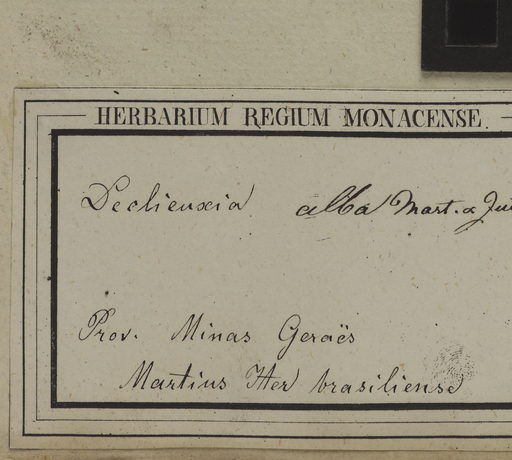 HERBARIUM REGIUM MONACENSE.
Declieuxia alba Mart. &
Prov. Minas Geraës
Martius Iter brasiliense